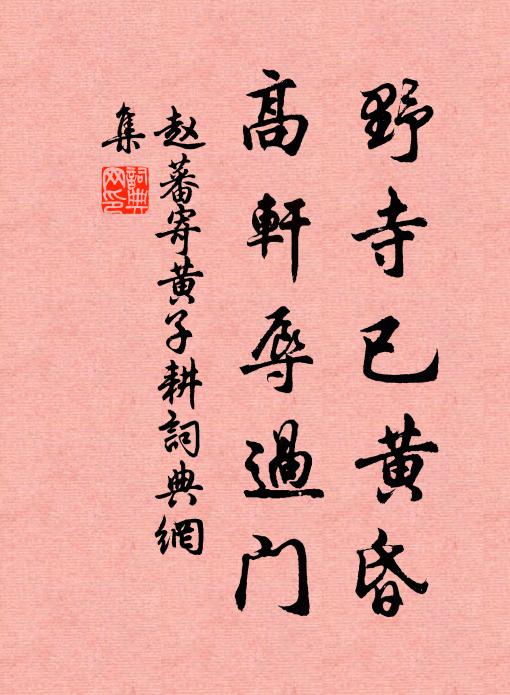 野寺已黄昏
高軒辱過门
赵蕃寄黄子耕詞典網
集
詞典网印